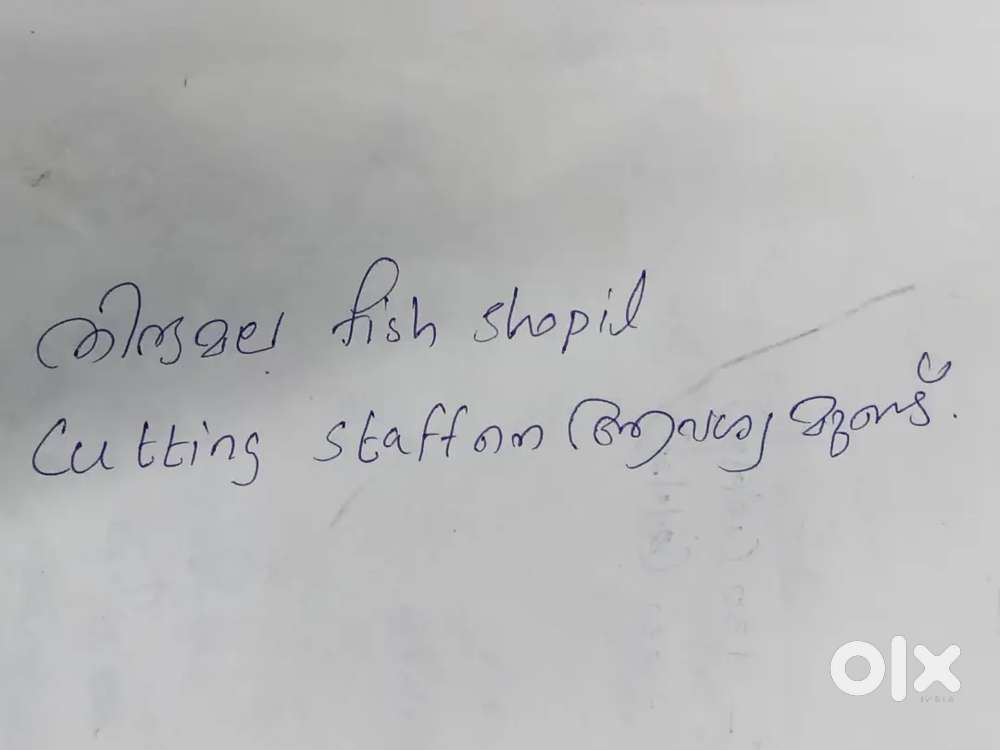 തിരുമല fish shopil
Cutting staffനെ ആവശ്യമുണ്ട്.
olx
INDIA